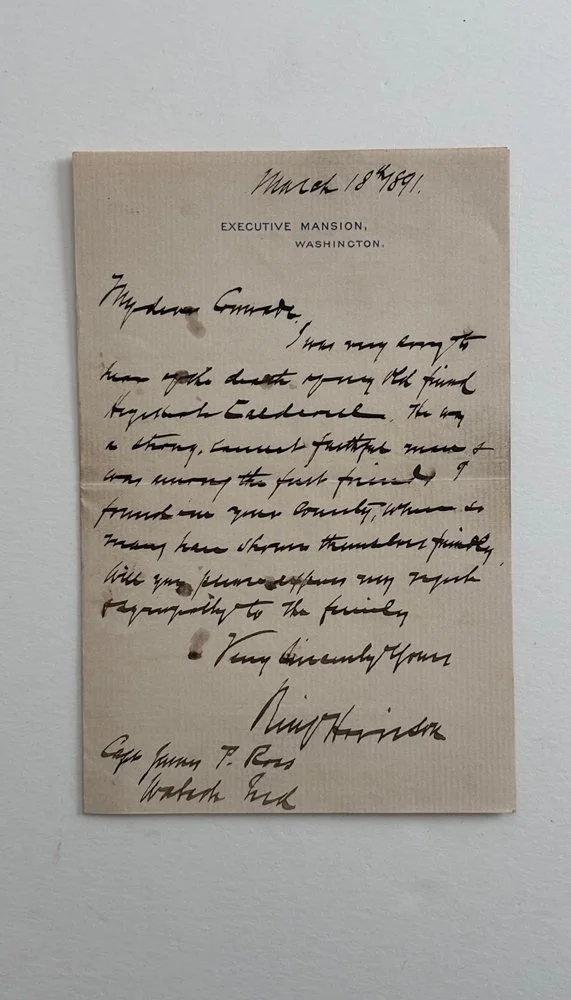 March 18th 1891.
EXECUTIVE MANSION,
WASHINGTON.
My dear Comrade,
I was very sorry to
hear of the death of my old friend
He was
a strong, earnest faithful man &
was among the first friends I
found in your County, where so
many have shown themselves friendly.
Will you please express my regret
& sympathy to the family
Very Sincerely Yours
Benj Harrison
Capt James P. Ross
Wabash Ind